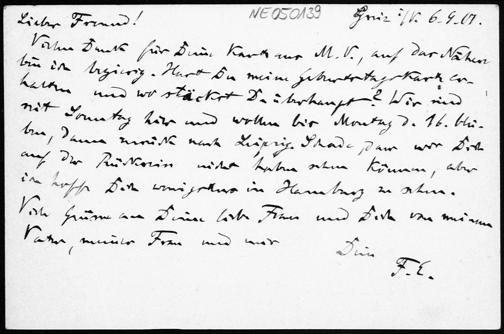 NE050139
Lieber Freund! Greiz i/V. 6.9.07.
Vielen Dank für Deine Karte aus M.V., auf das Nähere
bin ich begierig. Hast Du meine Geburtstagskarte er-
halten und wo steckst Du überhaupt? Wir sind
seit Sonntag hier und wollen bis Montag d. 16. blei-
ben, dann zurück nach Leipzig. Schade, dass wir Dich
auf der Rückreise nicht haben sehen können, aber
ich hoffe Dich wenigstens in Hamburg zu sehen.
Viele Grüsse an Deine liebe Frau und Dich von meinem
Vater, meiner Frau und mir
Dein
F.E.